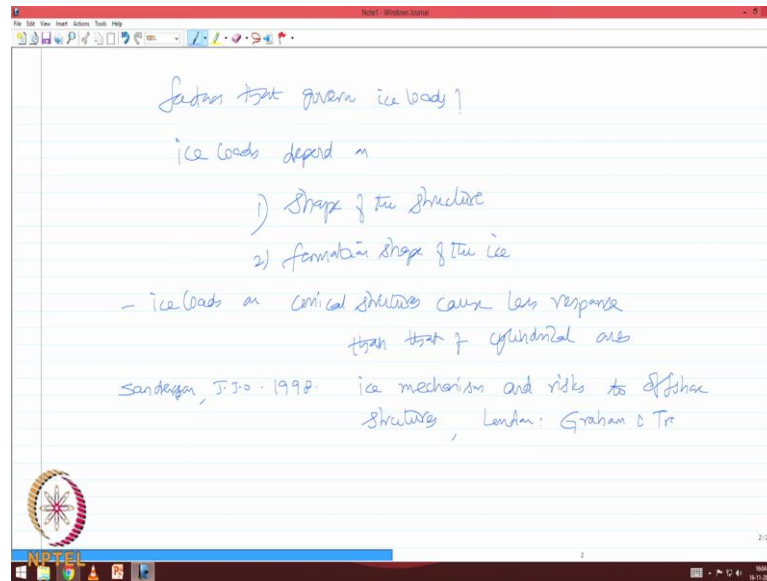 Note1 - Windows Journal
File Edit View Insert Actions Tools Help
factors that govern ice loads?
ice loads depend on
1) shape of the structure
2) formation shape of the ice
- ice loads on conical structures cause less response
than that of cylindrical ones
Sanderson, J.J.O. 1998. ice mechanism and risks to offshore
structures, London: Graham & Tr
2
NPTEL